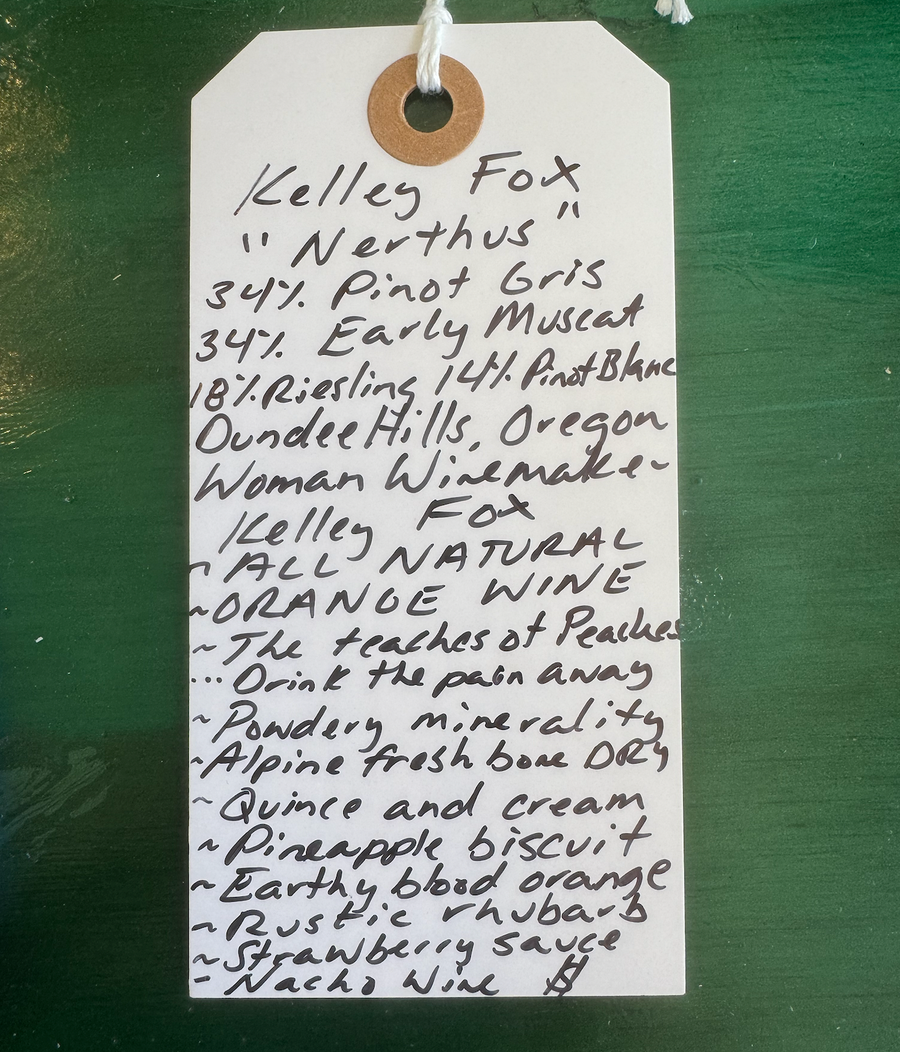 Kelley Fox
"Nerthus"
34% Pinot Gris
34% Early Muscat
18% Riesling 14% Pinot Blanc
Dundee Hills, Oregon
Woman Winemaker
Kelley Fox
~ ALL NATURAL
~ ORANGE WINE
~ The teaches of Peaches
... Drink the pain away
~ Powdery minerality
~ Alpine fresh bone DRY
~ Quince and cream
~ Pineapple biscuit
~ Earthy blood orange
~ Rustic rhubarb
~ Strawberry sauce
- Nacho Wine $